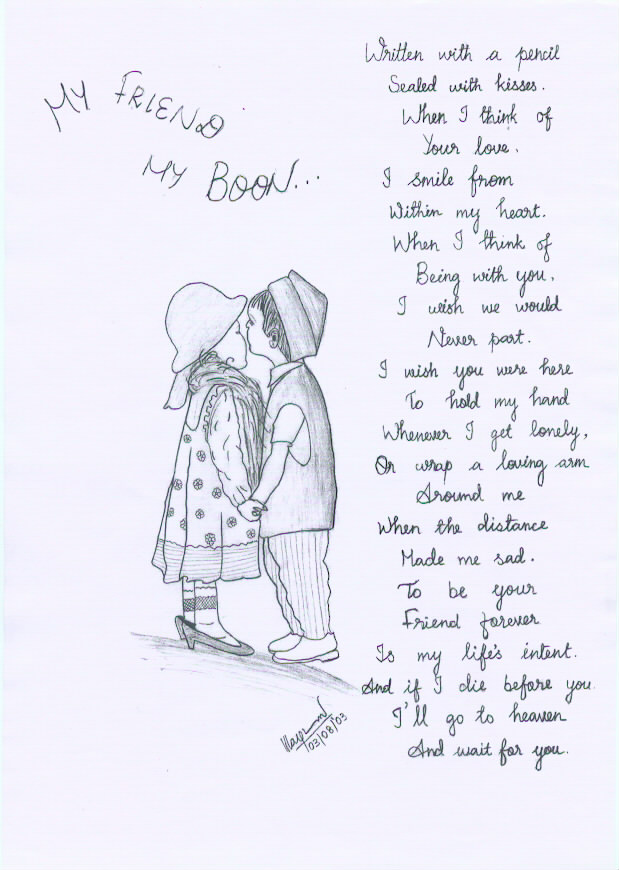 MY FRIEND
MY BOON...
Written with a pencil
Sealed with kisses.
When I think of
Your love.
I smile from
Within my heart.
When I think of
Being with you.
I wish we would
Never part.
I wish you were here
To hold my hand
Whenever I get lonely,
Or wrap a loving arm
Around me
When the distance
Made me sad.
To be your
Friend forever
Is my life's intent.
And if I die before you.
I'll go to heaven
And wait for you.
03/08/03